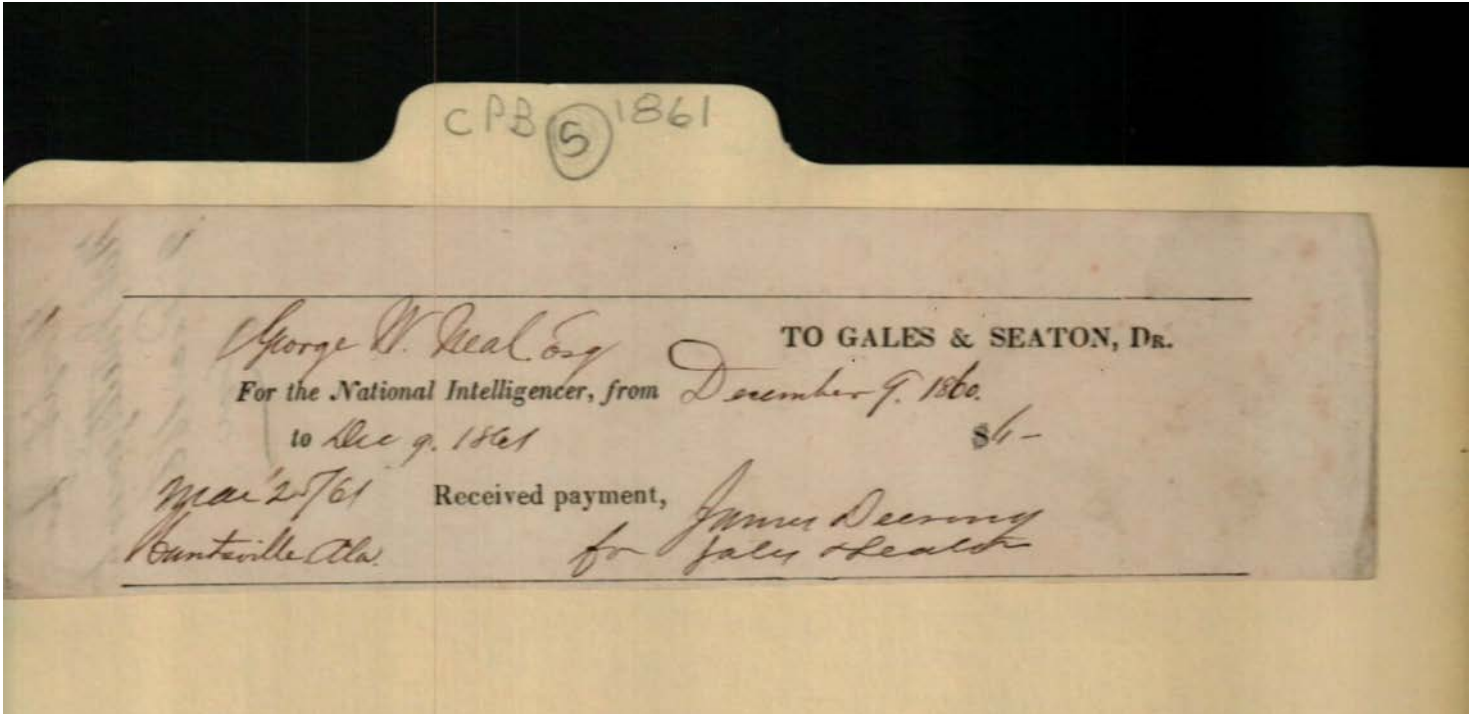 CPB 5 1861
George W. Neal Esq TO GALES & SEATON, DR.
For the National Intelligencer, from December 9. 1860.
to Dec 9. 1861 $6-
Mar 25/61 Received payment, James Deering
Huntsville Ala. for Gales & Seaton